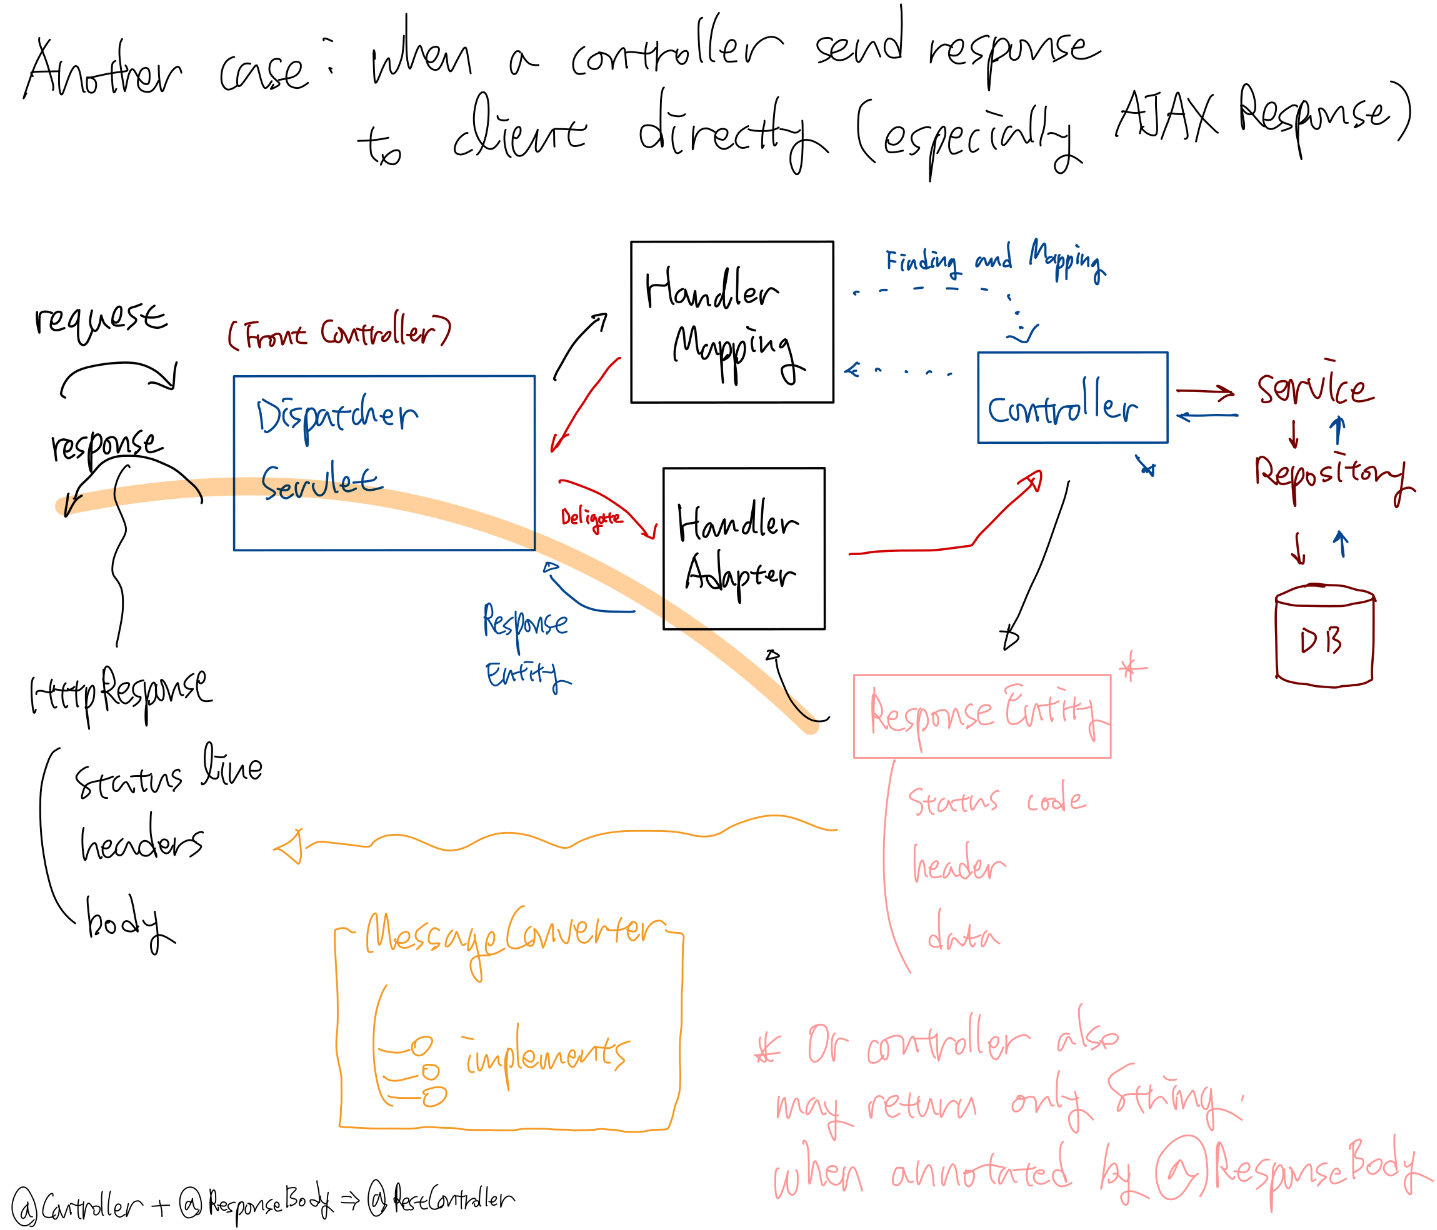 Another case: when a controller send response
to client directly (especially AJAX Response)
request
response
(Front Controller)
Dispatcher
Servlet
Handler
Mapping
Finding and Mapping
Controller
service
Repository
DB
Deligate
Handler
Adapter
Response
Entity
HttpResponse
status line
headers
body
Response Entity *
Status code
header
data
MessageConverter
implements
* Or controller also
may return only String.
when annotated by @ResponseBody
@Controller + @ResponseBody ⇒ @RestController